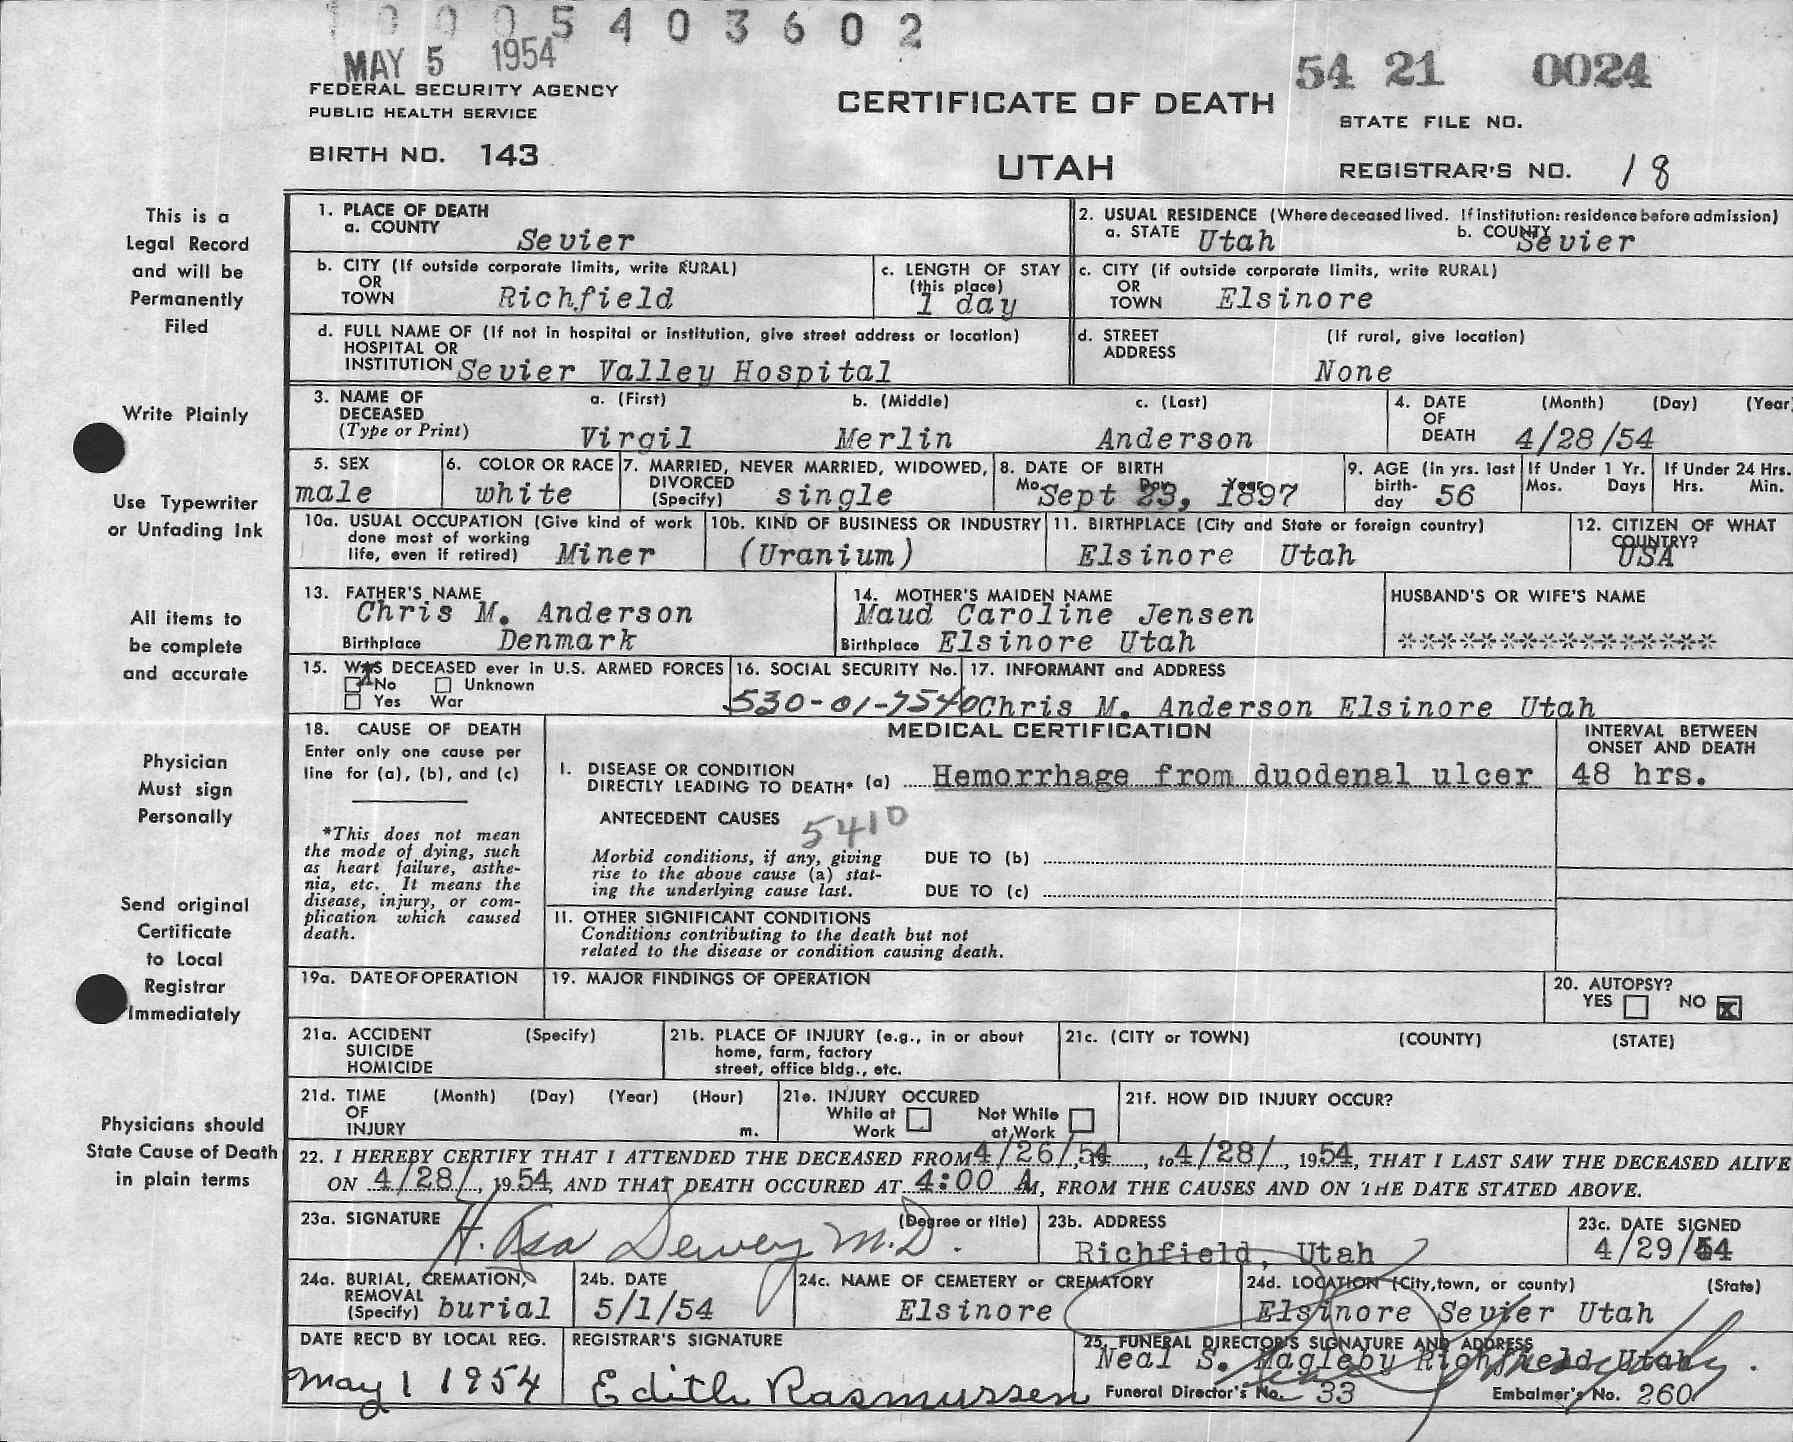 1 0 0 0 5 4 0 3 6 0 2
MAY 5 1954
54 21 0024
FEDERAL SECURITY AGENCY
PUBLIC HEALTH SERVICE
CERTIFICATE OF DEATH
STATE FILE NO.
BIRTH NO. 143
UTAH
REGISTRAR'S NO. 18
This is a
Legal Record
and will be
Permanently
Filed
Write Plainly
Use Typewriter
or Unfading Ink
All items to
be complete
and accurate
Physician
Must sign
Personally
Send original
Certificate
to Local
Registrar
Immediately
Physicians should
State Cause of Death
in plain terms
1. PLACE OF DEATH
a. COUNTY Sevier
2. USUAL RESIDENCE (Where deceased lived. If institution: residence before admission)
a. STATE Utah b. COUNTY Sevier
b. CITY (If outside corporate limits, write RURAL)
OR
TOWN Richfield
c. LENGTH OF STAY
(this place)
1 day
c. CITY (if outside corporate limits, write RURAL)
OR
TOWN Elsinore
d. FULL NAME OF (If not in hospital or institution, give street address or location)
HOSPITAL OR
INSTITUTION Sevier Valley Hospital
d. STREET (If rural, give location)
ADDRESS
None
3. NAME OF a. (First) b. (Middle) c. (Last)
DECEASED
(Type or Print) Virgil Merlin Anderson
4. DATE (Month) (Day) (Year
OF
DEATH 4/28/54
5. SEX
male
6. COLOR OR RACE
white
7. MARRIED, NEVER MARRIED, WIDOWED,
DIVORCED
(Specify) single
8. DATE OF BIRTH
Mo. Day Year
Sept 23, 1897
9. AGE (In yrs. last
birth-
day 56
If Under 1 Yr.
Mos. Days
If Under 24 Hrs.
Hrs. Min.
10a. USUAL OCCUPATION (Give kind of work
done most of working
life, even if retired) Miner
10b. KIND OF BUSINESS OR INDUSTRY
(Uranium)
11. BIRTHPLACE (City and State or foreign country)
Elsinore Utah
12. CITIZEN OF WHAT
COUNTRY?
USA
13. FATHER'S NAME
Chris M. Anderson
Birthplace Denmark
14. MOTHER'S MAIDEN NAME
Maud Caroline Jensen
Birthplace Elsinore Utah
HUSBAND'S OR WIFE'S NAME
******************
15. WAS DECEASED ever in U.S. ARMED FORCES
No Unknown
Yes War
16. SOCIAL SECURITY No.
530-01-7540
17. INFORMANT and ADDRESS
Chris M. Anderson Elsinore Utah
18. CAUSE OF DEATH
Enter only one cause per
line for (a), (b), and (c)
*This does not mean
the mode of dying, such
as heart failure, asthe-
nia, etc. It means the
disease, injury, or com-
plication which caused
death.
MEDICAL CERTIFICATION
INTERVAL BETWEEN
ONSET AND DEATH
I. DISEASE OR CONDITION
DIRECTLY LEADING TO DEATH* (a) Hemorrhage from duodenal ulcer 48 hrs.
ANTECEDENT CAUSES 5410
Morbid conditions, if any, giving
rise to the above cause (a) stat-
ing the underlying cause last.
DUE TO (b)
DUE TO (c)
II. OTHER SIGNIFICANT CONDITIONS
Conditions contributing to the death but not
related to the disease or condition causing death.
19a. DATE OF OPERATION
19. MAJOR FINDINGS OF OPERATION
20. AUTOPSY?
YES NO X
21a. ACCIDENT (Specify)
SUICIDE
HOMICIDE
21b. PLACE OF INJURY (e.g., in or about
home, farm, factory
street, office bldg., etc.
21c. (CITY or TOWN) (COUNTY) (STATE)
21d. TIME (Month) (Day) (Year) (Hour)
OF
INJURY m.
21e. INJURY OCCURED
While at Work
Not While at Work
21f. HOW DID INJURY OCCUR?
22. I HEREBY CERTIFY THAT I ATTENDED THE DECEASED FROM 4/26/, 1954, to 4/28/, 1954, THAT I LAST SAW THE DECEASED ALIVE
ON 4/28/, 1954, AND THAT DEATH OCCURED AT 4:00 AM, FROM THE CAUSES AND ON THE DATE STATED ABOVE.
23a. SIGNATURE (Degree or title)
H. Asa Dewey M.D.
23b. ADDRESS
Richfield, Utah
23c. DATE SIGNED
4/29/54
24a. BURIAL, CREMATION,
REMOVAL
(Specify) burial
24b. DATE
5/1/54
24c. NAME OF CEMETERY or CREMATORY
Elsinore
24d. LOCATION (City, town, or county) (State)
Elsinore Sevier Utah
DATE REC'D BY LOCAL REG.
May 1 1954
REGISTRAR'S SIGNATURE
Edith Rasmussen
25. FUNERAL DIRECTOR'S SIGNATURE AND ADDRESS
Neal S. Magleby Richfield Utah
Funeral Director's No. 33 Embalmer's No. 260